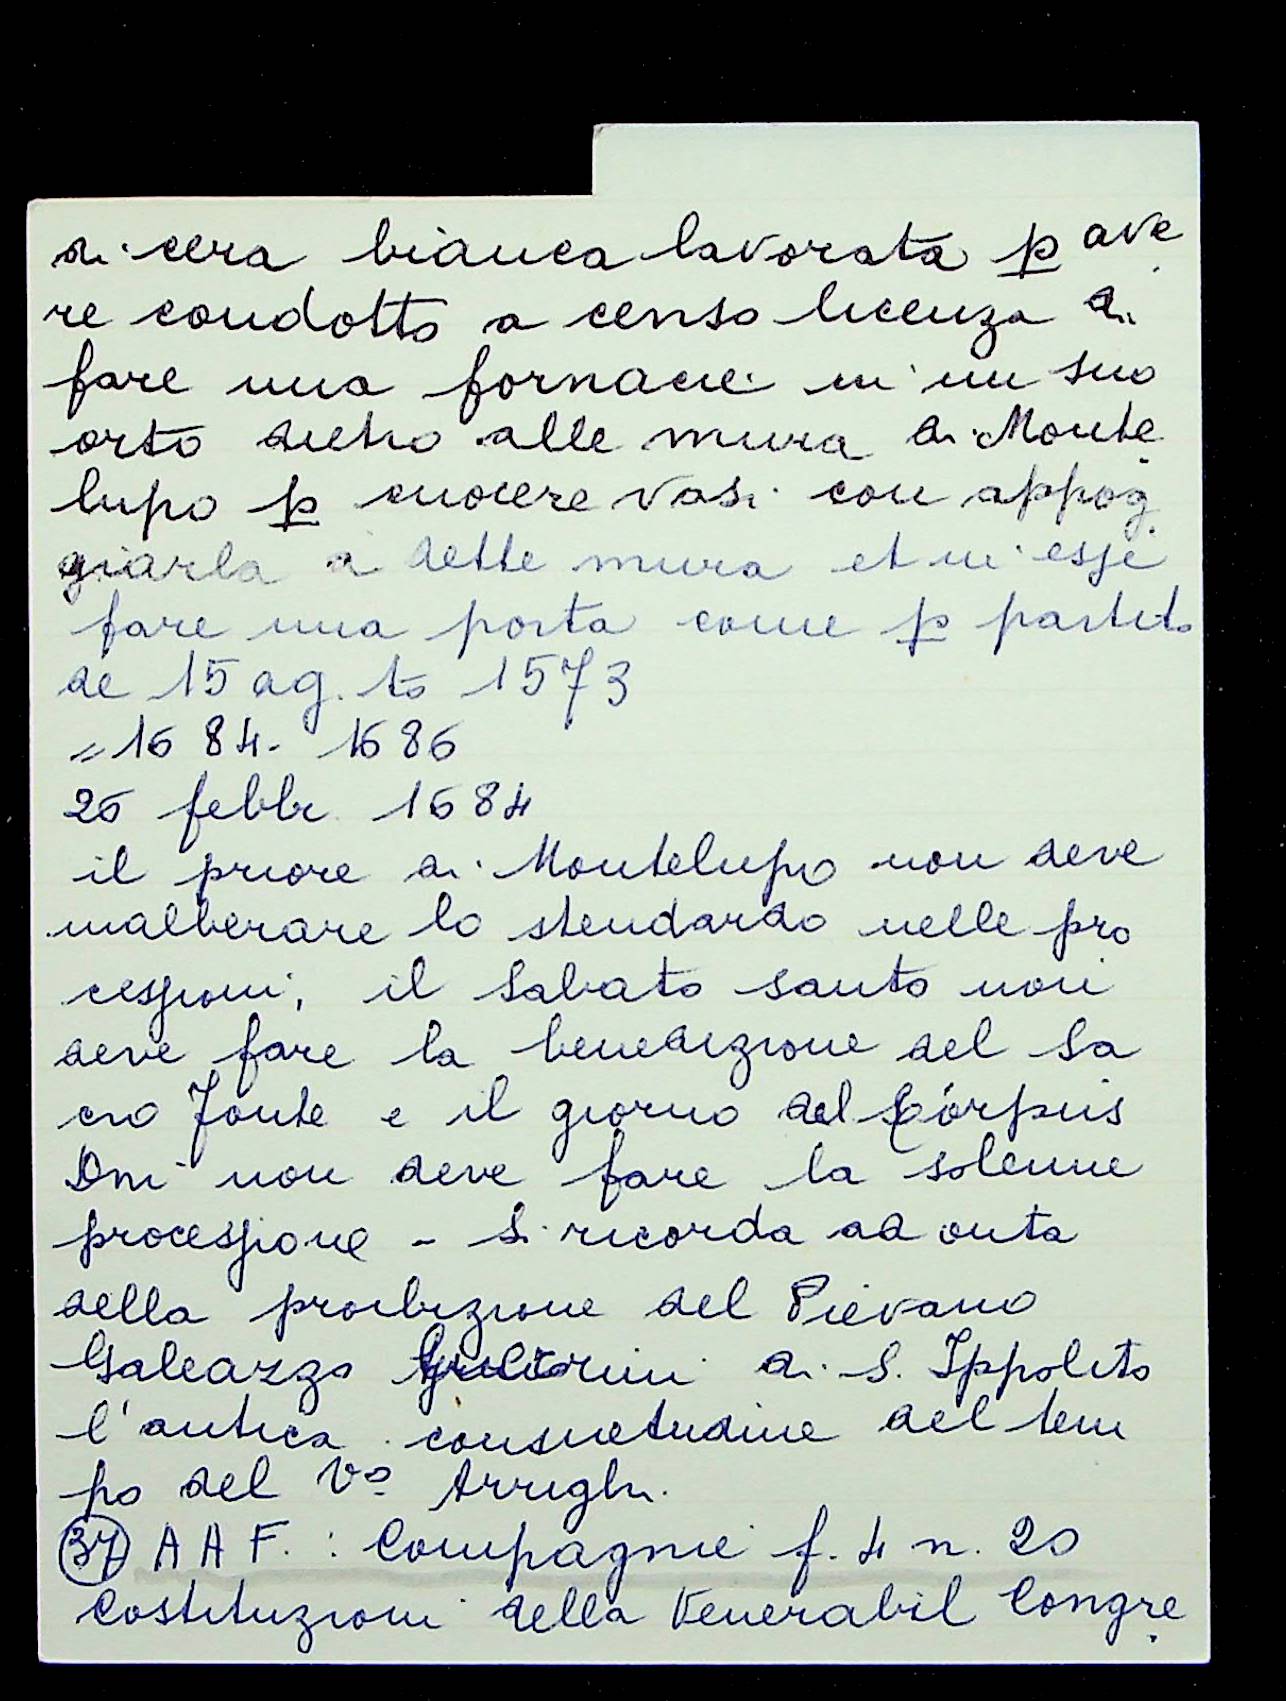 di cera bianca lavorata p ave
re condotto a censo licenza di
fare una fornacie in un suo
orto dietro alle mura di Monte
lupo p cuocere vasi con appog
giarla a dette mura et in esse
fare una porta come p partito
de 15 ag.to 1573
= 1684 - 1686
26 febbr. 1684
il priore di Montelupo non deve
inalberare lo stendardo nelle pro
cessioni, il Sabato santo non
deve fare la benedizione del Sa
cro Fonte e il giorno del Corpus
Dni non deve fare la solenne
processione - Si ricorda ad onta
della proibizione del Pievano
Galeazzo di S. Ippolito
l'antica consuetudine del tem
po del Vo Arrighi.
(37) A A F. : Compagnie f. 4 n. 20
Costituzioni della Venerabil Congre